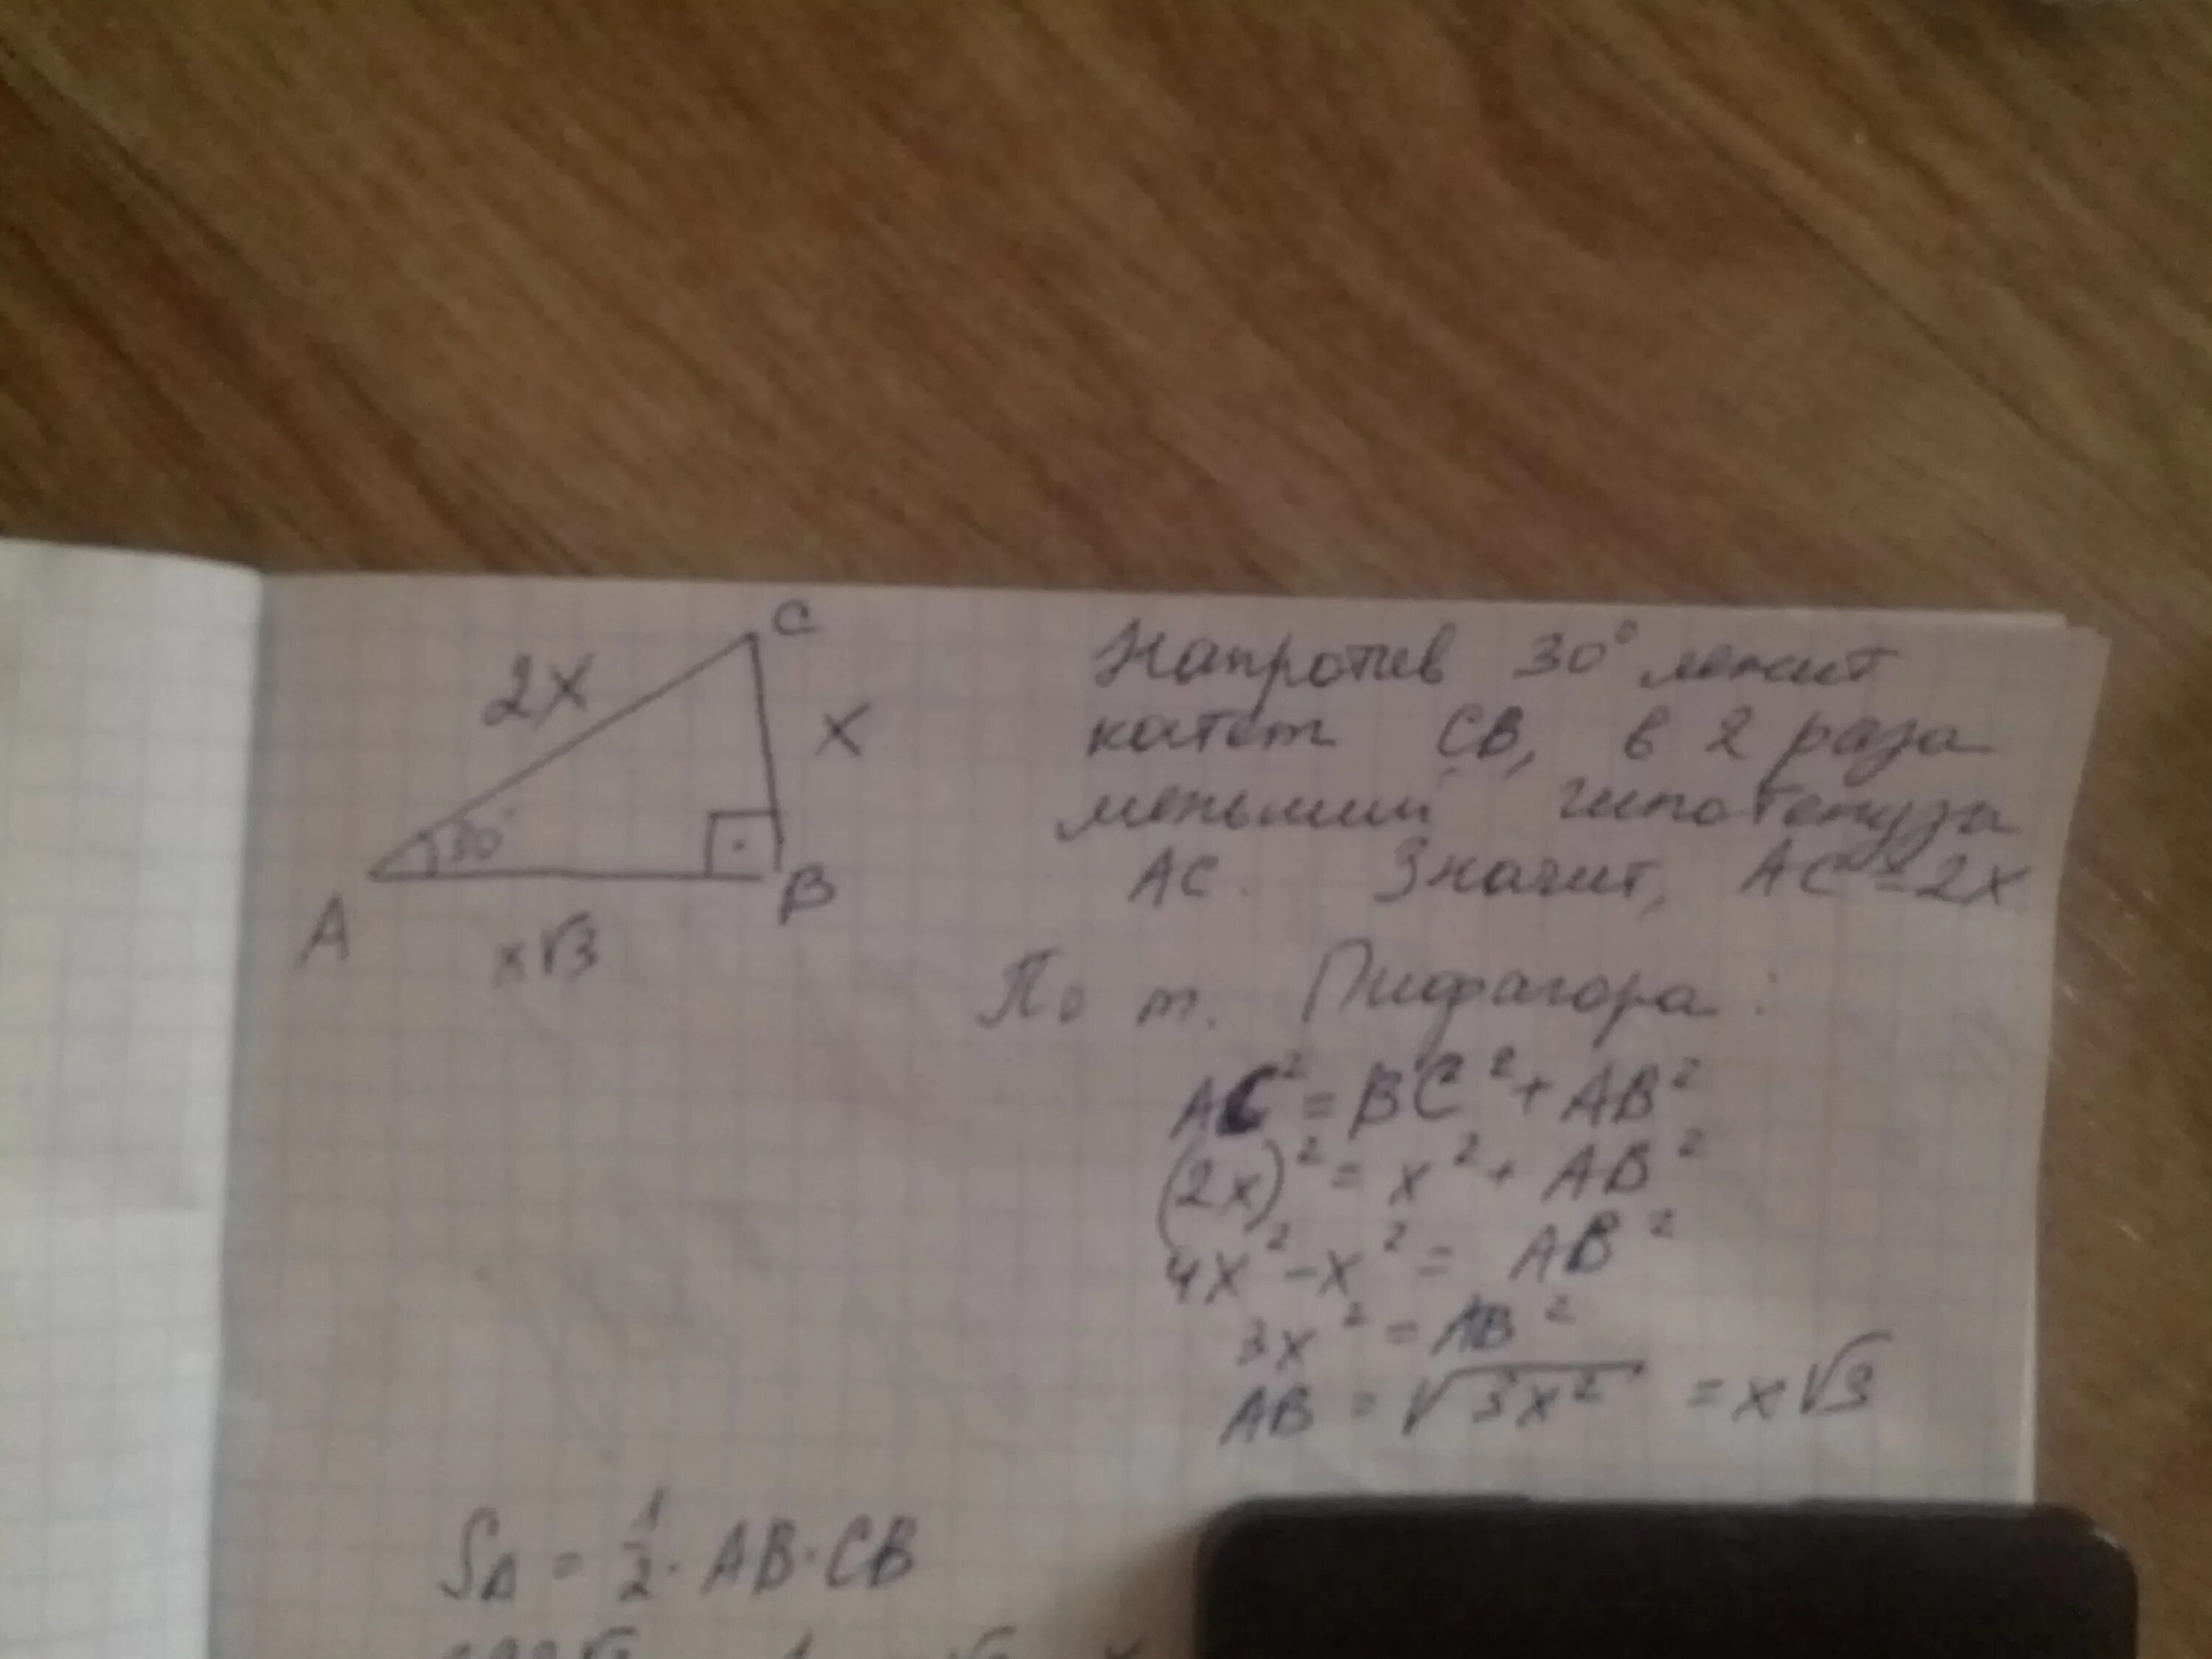 C
2x
x
30°
A
B
x√3
Напротив 30° лежит
катет CB, в 2 раза
меньший гипотенузы
AC. Значит, AC = 2x
По т. Пифагора:
AC² = BC² + AB²
(2x)² = x² + AB²
4x² - x² = AB²
3x² = AB²
AB = √3x² = x√3
S∆ = 1/2 · AB · CB